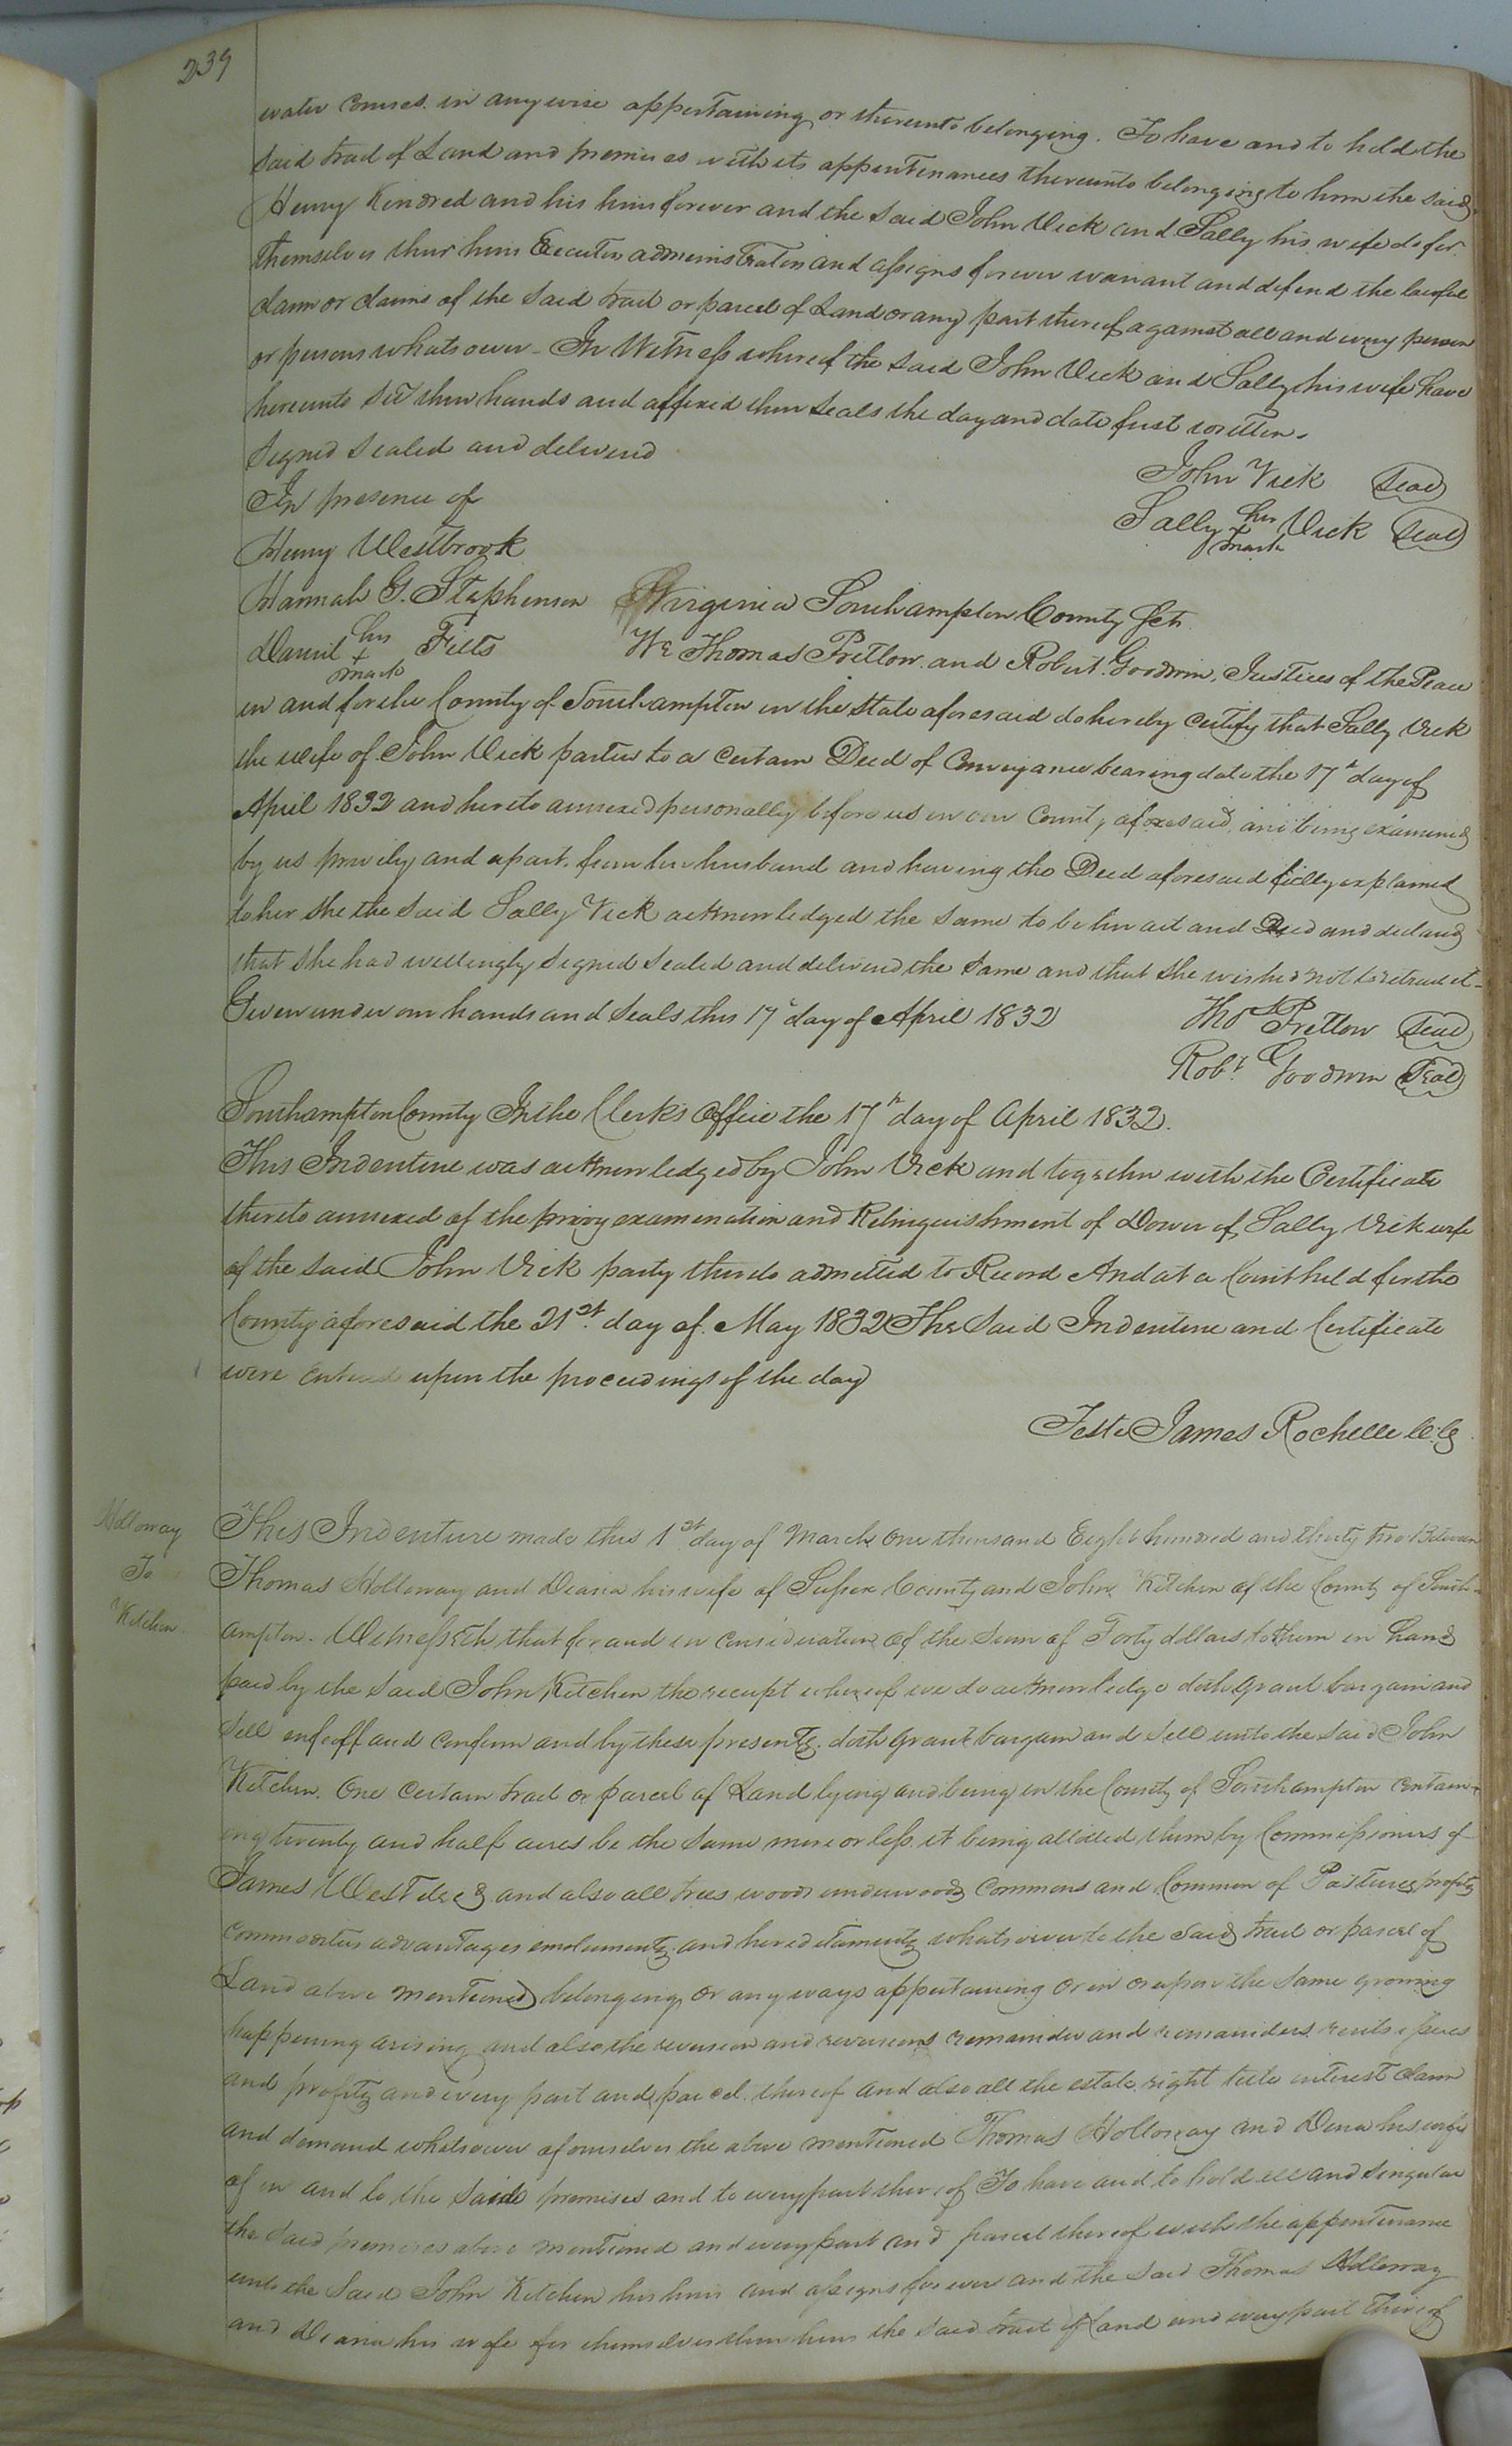 239
water Courses in anywise appertaining or thereunto belonging. To have and to hold the
said tract of Land and premises with its appurtenances thereunto belonging to him the said
Henry Kindred and his heirs forever and the said John Vick and Sally his wife do for
themselves their heirs Executors administrators and assigns forever warrant and defend the lawful
claim or claims of the said tract or parcel of Land or any part thereof against all and every person
or persons whatsoever - In Witness whereof the said John Vick and Sally his wife have
hereunto set their hands and affixed their seals the day and date first written.
Signed sealed and delivered
In presence of
John Vick Seal
Henry Westbrook
Sally her + mark Vick Seal
Hannah G. Stephenson
Daniel his + mark Felts
Virginia Southampton County Sct.
We Thomas Pretlow and Robert Goodwin, Justices of the Peace
in and for the County of Southampton in the State aforesaid do hereby certify that Sally Vick
the wife of John Vick parties to a certain Deed of Conveyance bearing date the 17th day of
April 1832 and hereto annexed personally before us in our County aforesaid, and being examined
by us privily and apart from her husband and having the Deed aforesaid fully explained
to her she the said Sally Vick acknowledged the same to be her act and Deed and declared
that she had willingly signed sealed and delivered the same and that she wished not to retract it -
Given under our hands and seals this 17th day of April 1832
Thos Pretlow Seal
Robt. Goodwin Seal
Southampton County In the Clerks Office the 17th day of April 1832.
This Indenture was acknowledged by John Vick and together with the Certificate
thereto annexed of the privy examination and Relinquishment of Dower of Sally Vick wife
of the said John Vick party thereto admitted to Record And at a Court held for the
County aforesaid the 21st. day of May 1832 The Said Indenture and Certificate
were Entered upon the proceedings of the day
Teste James Rochelle
Holloway
To
Kitchen.
This Indenture made this 1st day of March One thousand Eight hundred and thirty two Between
Thomas Holloway and Diana his wife of Sussex County and John Kitchen of the County of South-
ampton. Witnesseth that for and in consideration of the sum of Forty dollars to them in hand
paid by the said John Kitchen the receipt whereof we do acknowledge doth grant bargain and
sell enfeoff and confirm and by these presents doth grant bargain and sell unto the said John
Kitchen. One certain tract or parcel of Land lying and being in the County of Southampton contain-
ing twenty and half acres be the same more or less it being allotted them by Commissioners of
James West decd and also all trees woods underwoods commons and Common of Pastures profits
commodities advantages emoluments and hereditaments whatsoever to the said tract or parcel of
Land above mentioned belonging or any ways appertaining or in or upon the same growing
happening arising and also the reversion and reversions remainder and remainders rents issues
and profits and every part and parcel thereof and also all the estate right title interest claim
and demand whatsoever of ourselves the above mentioned Thomas Holloway and Dina his wife
of in and to the said premises and to every part thereof To have and to hold all and singular
the said premises above mentioned and every part and parcel thereof with the appurtenance
unto the said John Kitchen his heirs and assigns for ever and the said Thomas Holloway
and Diana his wife for themselves their heirs the said tract of Land and every part thereof